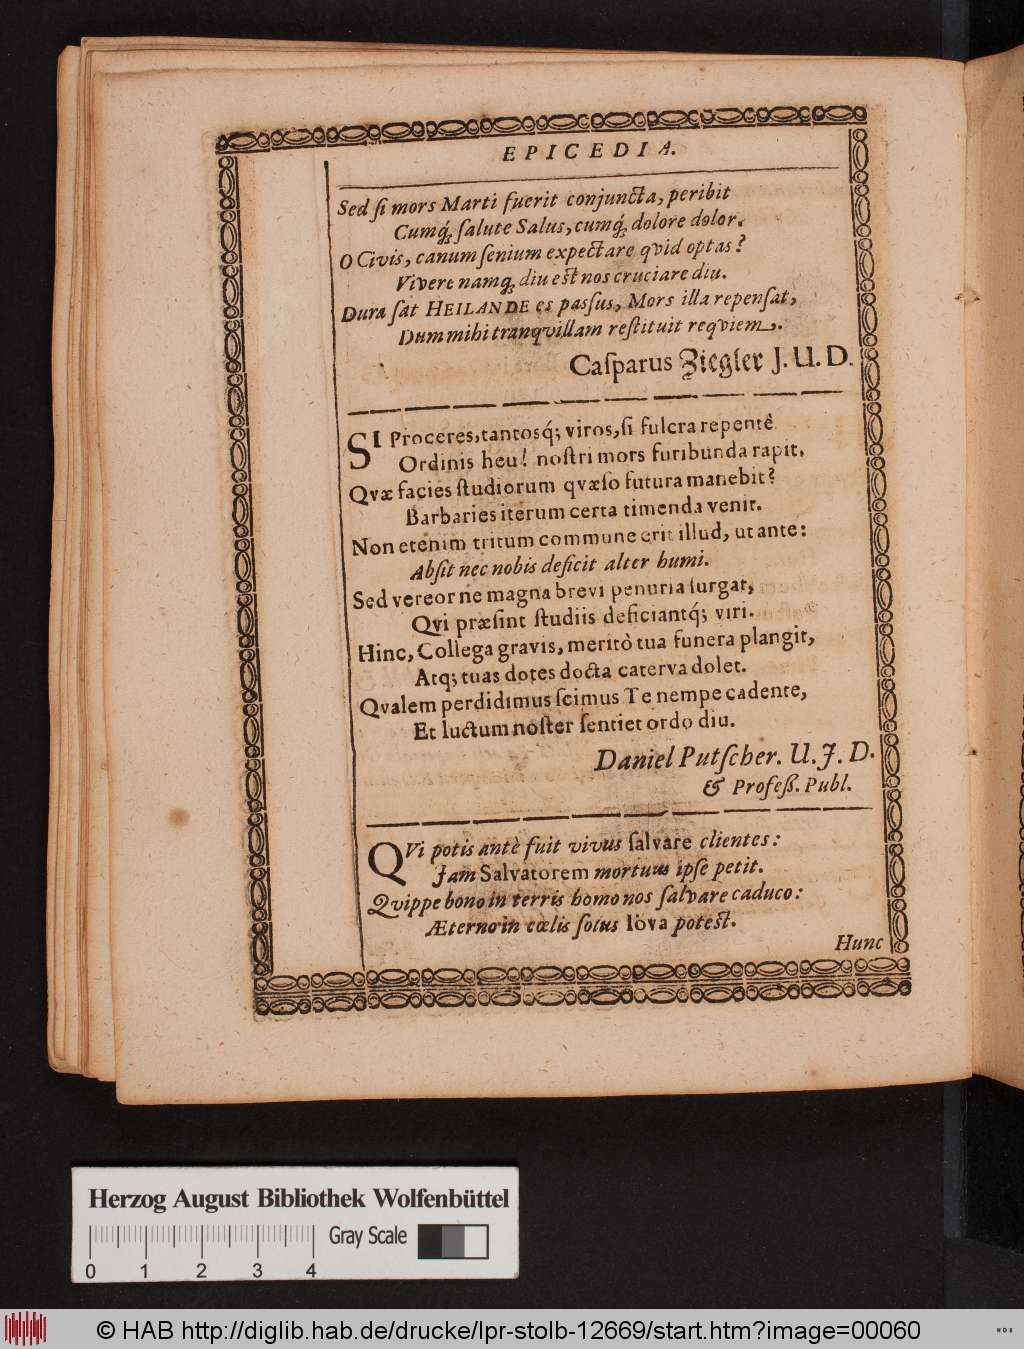 EPICEDIA.
Sed ſi mors Marti fuerit conjuncta, peribit
Cumq́; ſalute Salus, cumq́; dolore dolor.
O Civis, canum ſenium expectare qvid optas?
Vivere namq; diu eſt nos cruciare diu.
Dura ſat HEILANDE es paſſus, Mors illa repenſat,
Dum mihi tranqvillam reſtituit reqviem.
Caſparus Ziegler J. U. D.
SI Proceres, tantosq́; viros, ſi fulcra repentê
Ordinis heu! noſtri mors furibunda rapit,
Qvæ facies ſtudiorum qvæſo futura manebit?
Barbaries iterum certa timenda venit.
Non etenim tritum commune erit illud, ut ante:
Abſit nec nobis deficit alter humi.
Sed vereor ne magna brevi penuria ſurgat,
Qvi præſint ſtudiis deficiantq́; viri.
Hinc, Collega gravis, meritò tua funera plangit,
Atq; tuas dotes docta caterva dolet.
Qvalem perdidimus ſcimus Te nempe cadente,
Et luctum noſter ſentiet ordo diu.
Daniel Putſcher. U. J. D.
& Profeß. Publ.
QVi potis antè fuit vivus ſalvare clientes:
Jam Salvatorem mortuus ipſe petit.
Qvippe bono in terris homo nos ſalvare caduco:
Æterno in cœlis ſolus Iova poteſt.
Hunc
Herzog August Bibliothek Wolfenbüttel
Gray Scale
0 1 2 3 4
© HAB http://diglib.hab.de/drucke/lpr-stolb-12669/start.htm?image=00060